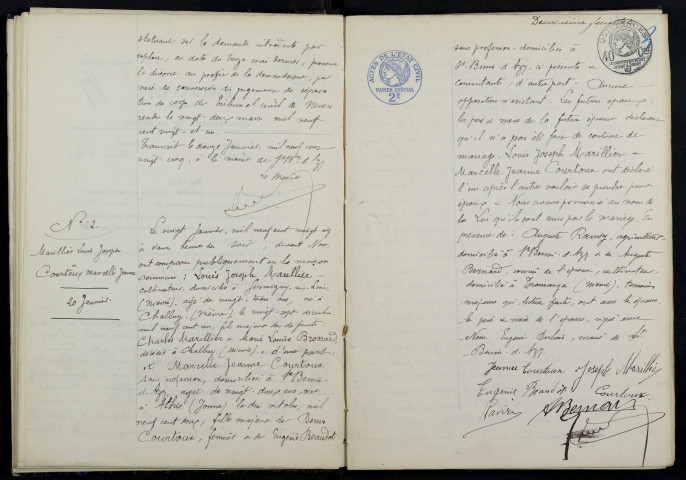 statuant sur la demande introduite par
exploit, en date du treize mai dernier, prononce
le divorce au profit de la demanderesse, par
voie de conversion du jugement de sépara-
tion de corps du tribunal civil de Nevers
rendu le vingt deux mars mil neuf
cent vingt et un.
Transcrit le douze Janvier, mil neuf cent
vingt cinq, à la mairie de St Benin d'Azy
Le Maire
N° 2
Marillier Louis Joseph
Courtoux Marcelle Jeanne
20 Janvier
Le vingt Janvier, mil neuf cent vingt cinq
à deux heures du soir, devant Nous
ont comparu publiquement en la maison
commune: Louis Joseph Marillier
cultivateur, domicilié à Germigny-sur-Loire
(Nièvre), âgé de vingt-trois ans, né à
Challuy (Nièvre) le vingt-sept décembre
mil neuf cent un, fils majeur des défunts
Charles Marillier & Marie Louise Brossard
décédés à Challuy (Nièvre), d'une part
& Marcelle Jeanne Courtoux
sans profession, domiciliée à St Benin
d'Azy, âgée de vingt-deux ans, née
à Athie (Yonne) le dix octobre, mil
neuf cent deux, fille majeure de Benin
Courtoux, fermier & de Eugénie Beaudot
Deuxième feuillet
sans profession, domiciliés à
St Benin d'Azy, ci présents &
consentants d'autre part. Aucune
opposition n'existant. Les futurs époux,
les père & mère de la future épouse déclarent
qu'il n'a pas été fait de contrat de
mariage. Louis Joseph Marillier &
Marcelle Jeanne Courtoux ont déclaré
l'un après l'autre vouloir se prendre pour
époux & Nous avons prononcé au nom de
la Loi qu'ils sont unis par le mariage. En
présence de: Auguste agriculteur
domicilié à St Benin d'Azy & de Auguste
Bernard, de l'époux, cultivateur
domicilié à (Nièvre), témoins
majeurs qui, lecture faite, ont avec les époux,
les père & mère de l'épouse signé avec
Nous, Eugène maire de St
Benin d'Azy.
Jeanne Courtoux Joseph Marillier
Eugénie Beaudot Courtoux
Bernard
ACTES DE L'ETAT CIVIL
PAPIER SPÉCIAL
2F